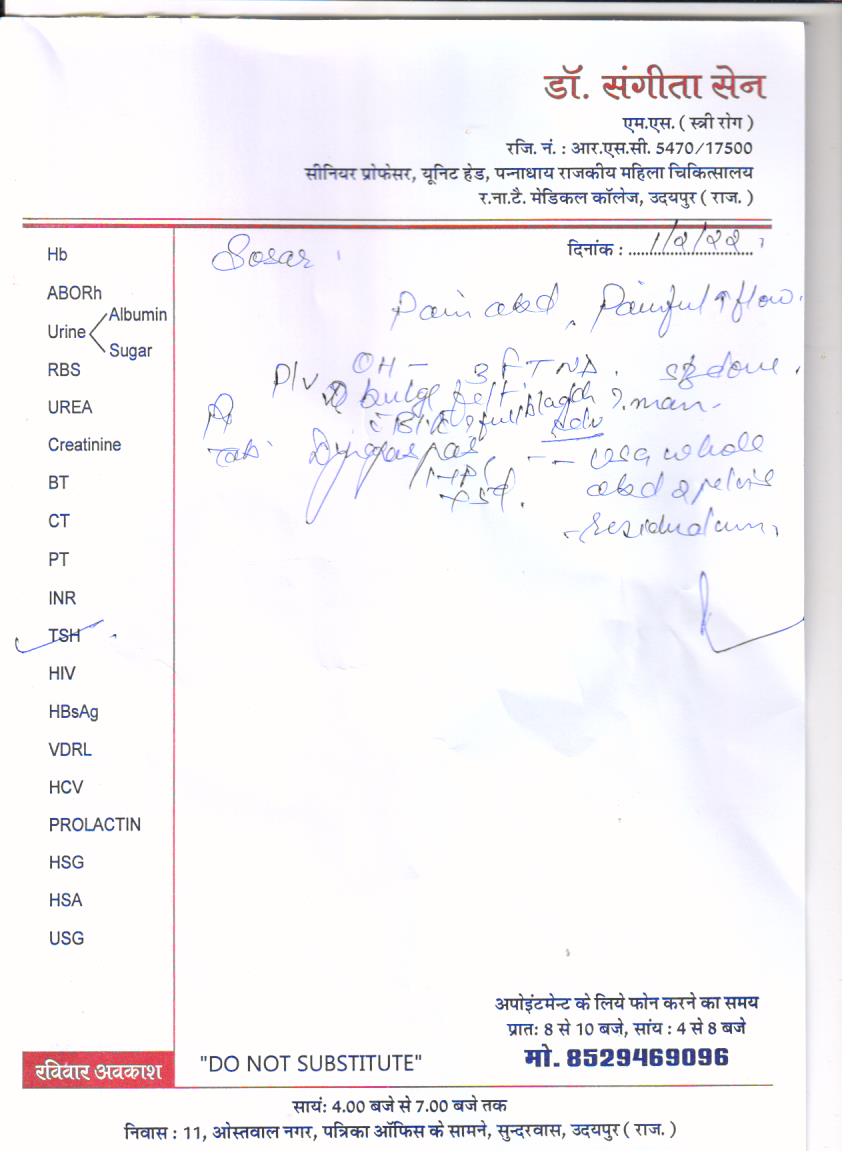 डॉ. संगीता सेन
एम.एस. ( स्त्री रोग )
रजि. नं. : आर.एस.सी. 5470/17500
सीनियर प्रोफेसर, यूनिट हेड, पन्नाधाय राजकीय महिला चिकित्सालय
र.ना.टै. मेडिकल कॉलेज, उदयपुर ( राज. )
दिनांक : 1/2/22
Sosar
Pain abd, Painful ↑ flow.
OH - 3 FTND.
P/V
bulge felt
Adv
Tab.
- USG whole
abd & pelvis
- residual urine
Hb
ABORh
Urine
Albumin
Sugar
RBS
UREA
Creatinine
BT
CT
PT
INR
TSH
HIV
HBsAg
VDRL
HCV
PROLACTIN
HSG
HSA
USG
अपोइंटमेन्ट के लिये फोन करने का समय
प्रात: 8 से 10 बजे, सांय : 4 से 8 बजे
मो. 8529469096
रविवार अवकाश
"DO NOT SUBSTITUTE"
सायं: 4.00 बजे से 7.00 बजे तक
निवास : 11, ओस्तवाल नगर, पत्रिका ऑफिस के सामने, सुन्दरवास, उदयपुर ( राज. )